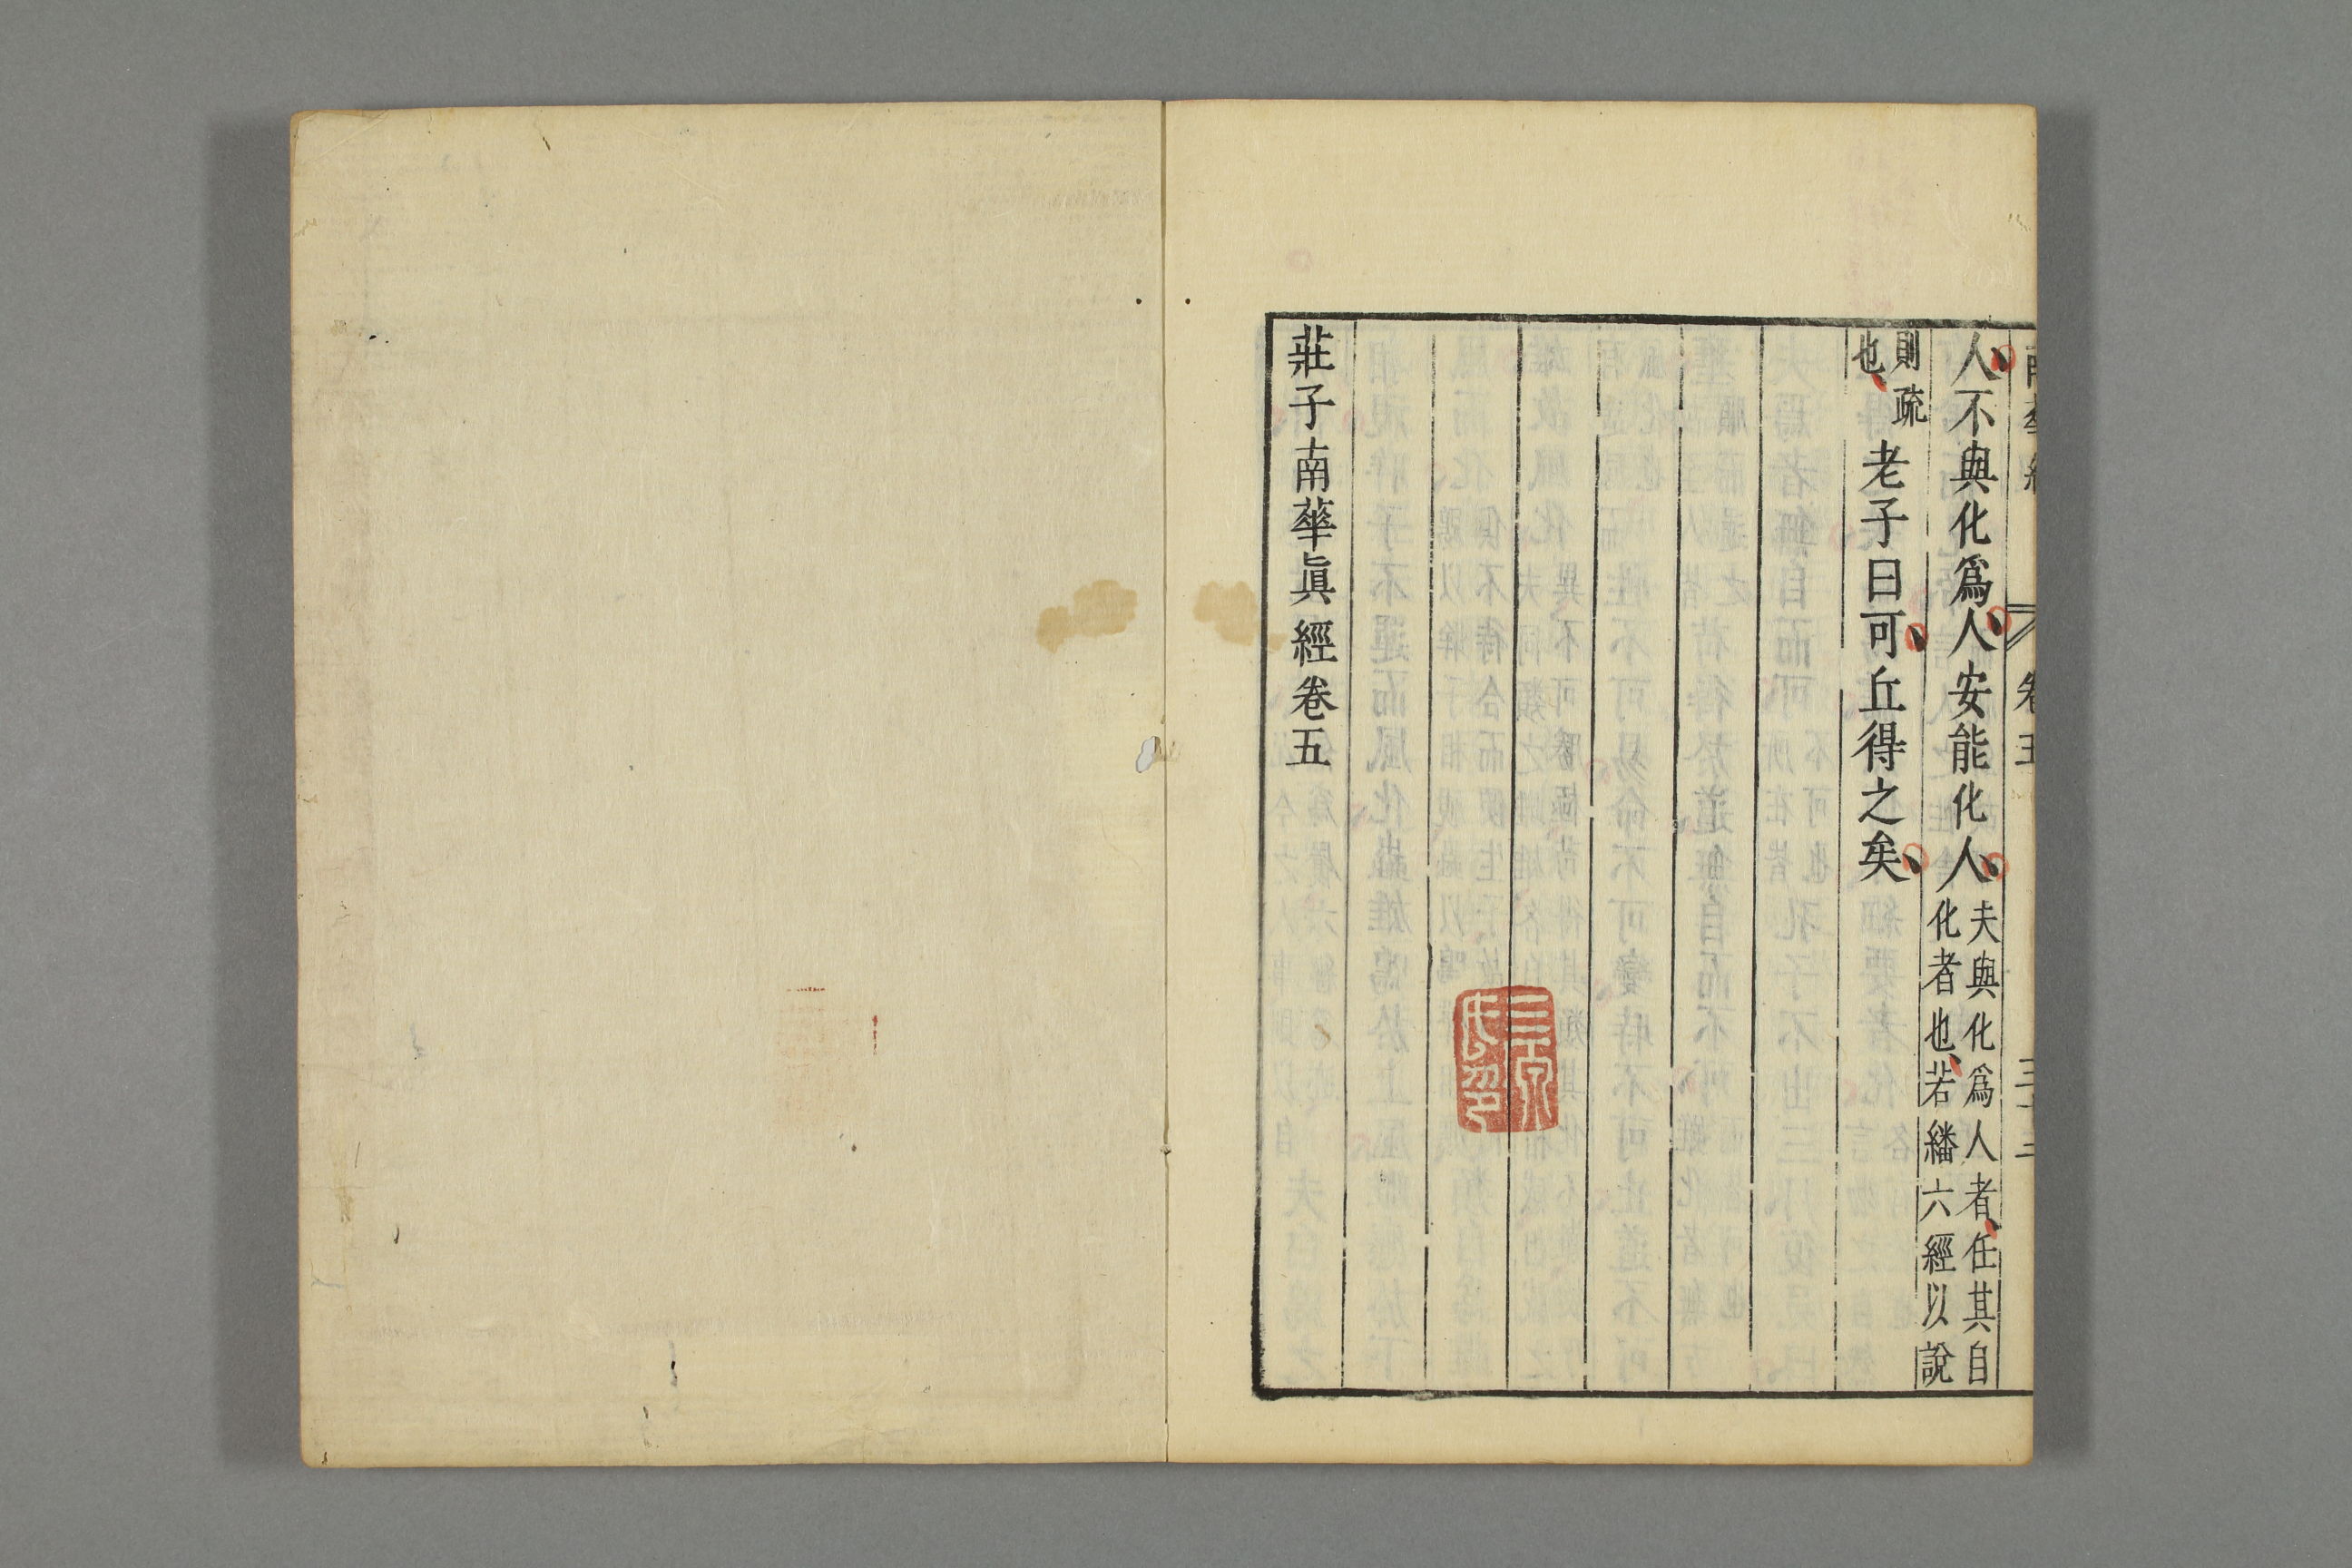 南華經 卷五 三十三
人不與化爲人安能化人 夫與化爲人者任其自
化者也若繙六經以說
則疏
也 老子曰可丘得之矣
莊子南華眞經卷五